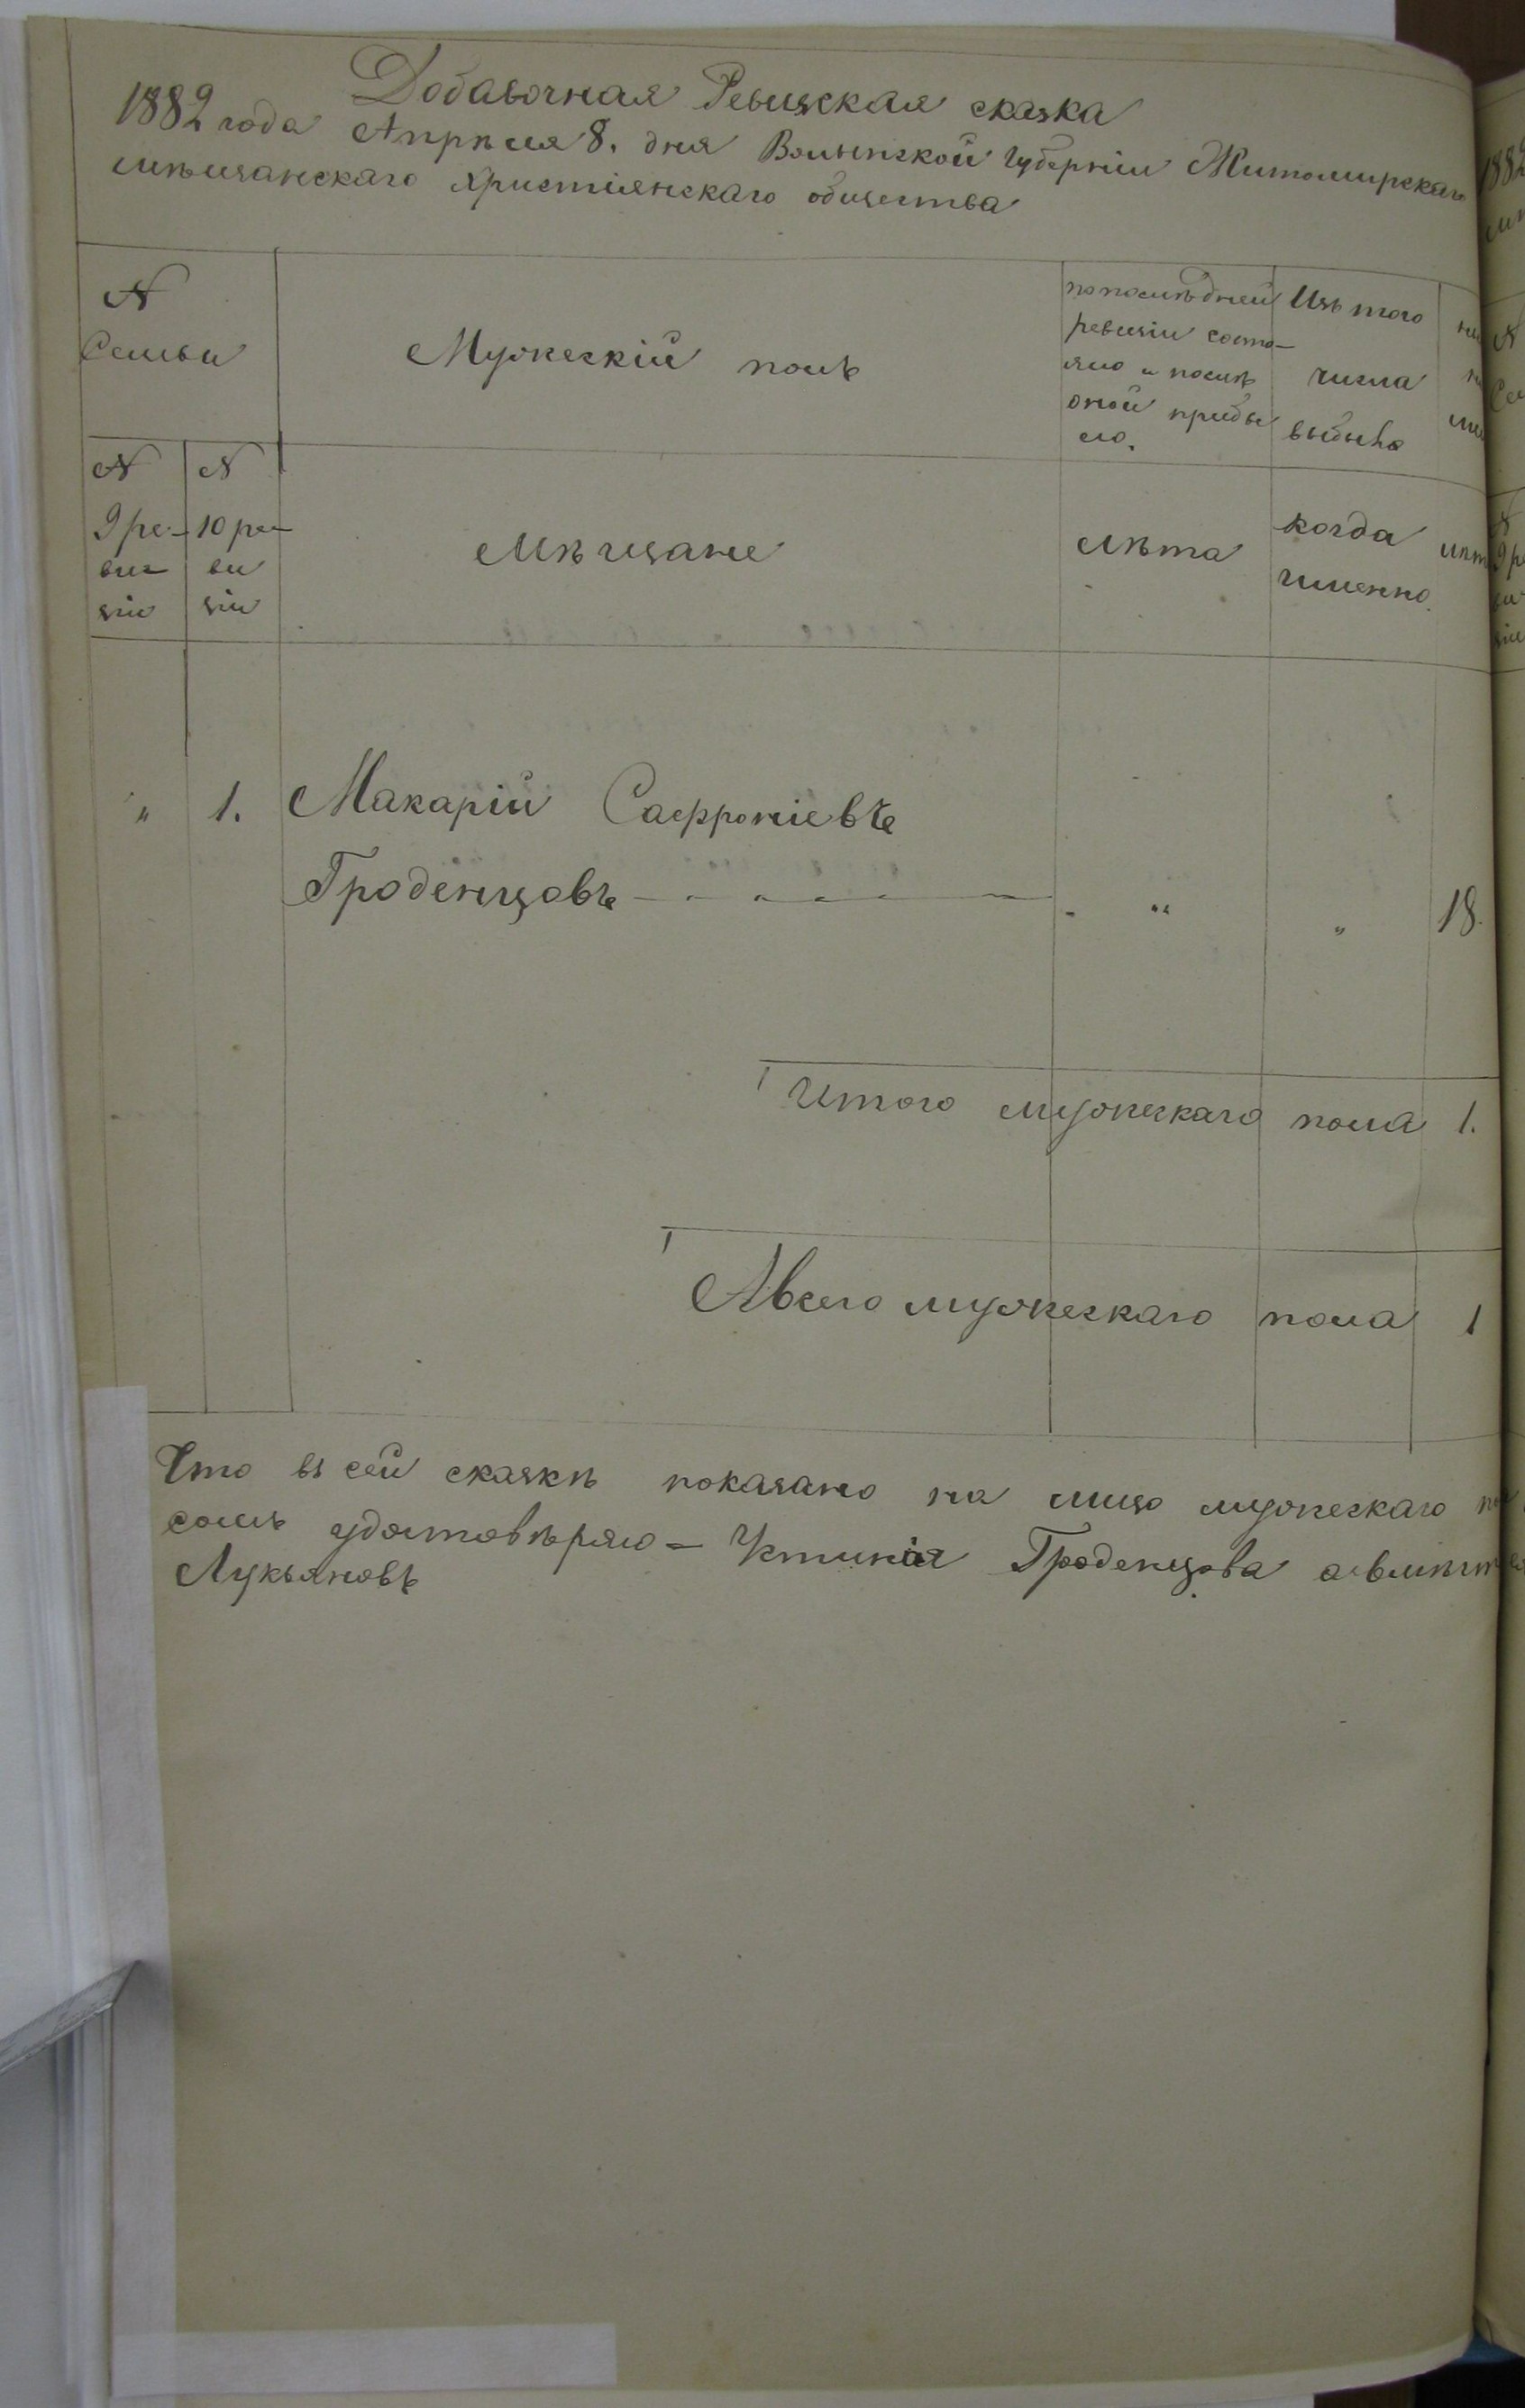 Добавочная Ревизская сказка
1882 года Апрѣля 8. дня Волынской губерніи Житомирскаго
мѣщанскаго христіянскаго общества
№
Семьи
Мужескій полъ
по послѣдней
ревизіи состо-
яло и послѣ
оной прибы
ло.
Изъ того
числа
выбыло
№
9 ре-
ви-
зіи
№
10 ре-
ви
зіи
Мѣщане
лѣта
когда
именно
„ 1. Макарій Сафроніевъ
Гроденцовъ - - - - „ „ 18.
Итого мужескаго пола 1.
А всего мужескаго пола 1
Что въ сей сказкѣ показано на лицо мужескаго
удостовѣряю - Устинія Гроденцова
Лукьяновъ